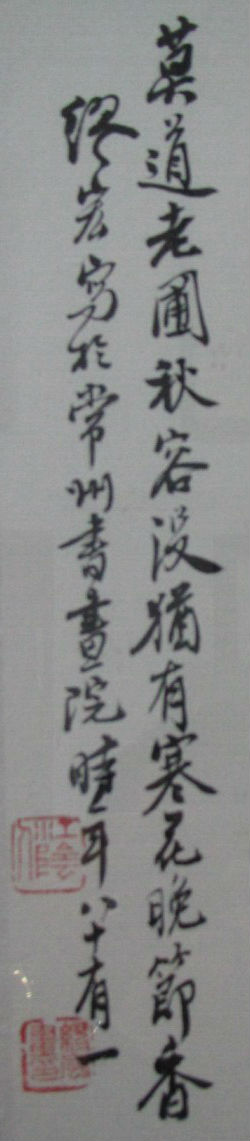 莫道老圃秋容没猶有寒花晚節香
繆宏寫於常州書畫院時年八十有一